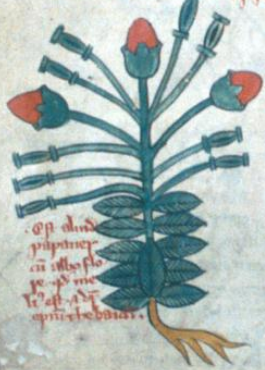 Est aliud
papauer
cū albo flo
re qd me
li' est ad
opiū thebaicū.